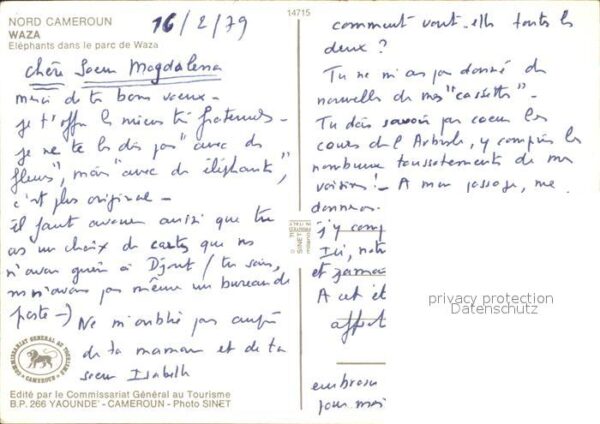 NORD CAMEROUN
WAZA
Eléphants dans le parc de Waza
14715
16/2/79
Chère Soeur Magdalena
merci de tes bons voeux -
je t'offre les miens très fraternels -
je ne te les dis pas "avec des
fleurs", mais "avec des éléphants",
c'est plus original -
il faut avouer aussi que tu
as un choix de cartes que ns
n'avons guère à Djout / tu sais,
ns n'avons pas même un bureau de
poste -) Ne m'oublie pas auprès
de ta maman et de ta
soeur Isabelle
COMMISSARIAT GENERAL AU TOURISME
CAMEROUN
Edité par le Commissariat Général au Tourisme
B.P. 266 YAOUNDE' - CAMEROUN - Photo SINET
SINET
comment vont-elles toutes les
deux ?
Tu ne m'as pas donné de
nouvelles de mes "cassettes" -
Tu dois savoir par coeur les
cours de l'Arbresle, y compris les
nombreux toussotements de ma
voisine ! - A mon passage, me
donneras
j'y comp
Ici, notre
et
A cet ét
affect
privacy protection
Datenschutz
embrasse
pour moi